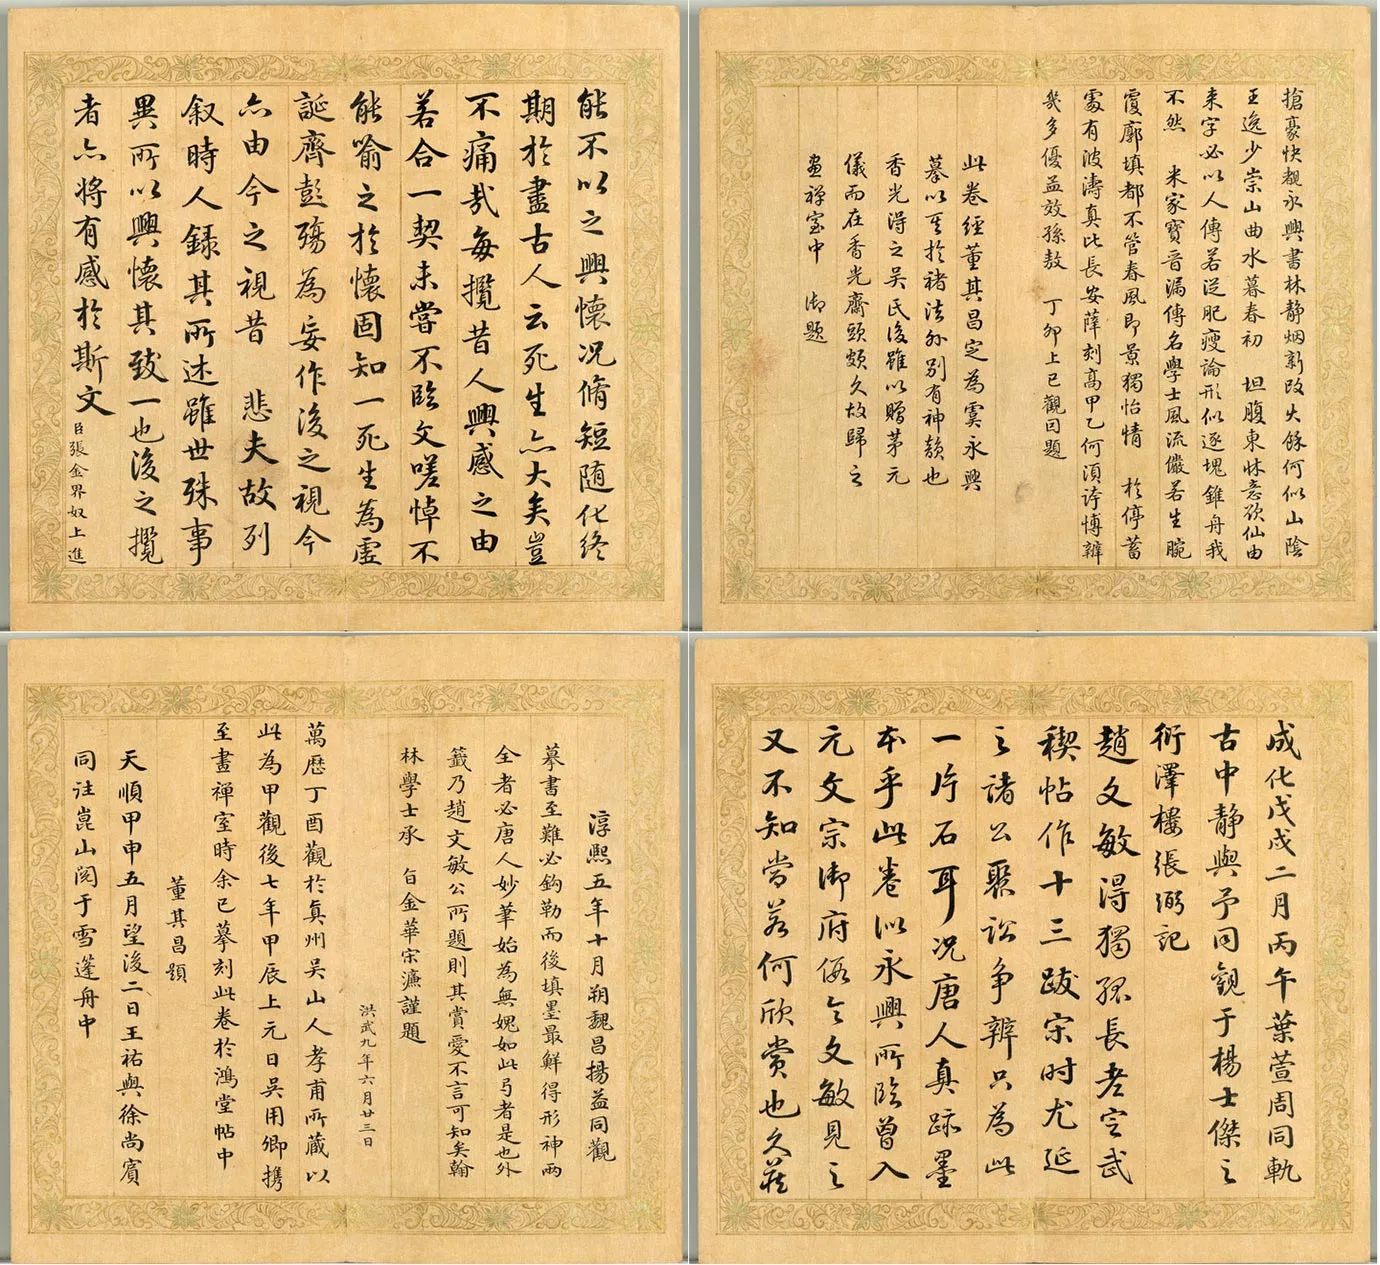 能不以之興懷况脩短随化終
期於盡古人云死生亦大矣豈
不痛哉每攬昔人興感之由
若合一契未嘗不臨文嗟悼不
能喻之於懷固知一死生為虛
誕齊彭殤為妄作後之視今
亦由今之視昔 悲夫故列
叙時人錄其所述雖世殊事
異所以興懷其致一也後之攬
者亦將有感於斯文
臣張金界奴上進
搶豪快覩永興書林静烟新改火餘何似山陰
王逸少崇山曲水暮春初 坦腹東牀意欲仙由
来字必以人傳若從肥瘦論形似逐塊錐舟我
不然 米家寶晉漏傳名學士風流儼若生腕
廓填都不管春風即景獨怡情 於停蓄
處有波濤真比長安薛刻高甲乙何須誇博辨
幾多優孟效孫敖 丁卯上巳觀因題
此卷經董其昌定為虞永興
摹以其於褚法外別有神韻也
香光得之吳氏後雖以贈茅元
儀而在香光齋頭頗久故歸之
畫禪室中 御題
淳熙五年十月朔魏昌揚益同觀
摹書至難必鈎勒而後填墨最鮮得形神兩
全者必唐人妙筆始為無媿如此弓者是也外
籤乃趙文敏公所題則其賞愛不言可知矣翰
林學士承 旨金華宋濂謹題
洪武九年六月廿三日
萬曆丁酉觀於真州吳山人孝甫所藏以
此為甲觀後七年甲辰上元日吳用卿攜
至畫禪室時余已摹刻此卷於鴻堂帖中
董其昌題
天順甲申五月望後二日王祐與徐尚賓
同往崑山閱于雪蓬舟中
成化戊戌二月丙午葉萱周同軌
古中静與予同觀于楊士傑之
衍澤樓張弼記
趙文敏得獨孤長老定武
禊帖作十三跋宋時尤延
之諸公聚訟争辨只為此
一片石耳况唐人真跡墨
本乎此卷似永興所臨曾入
元文宗御府假令文敏見之
又不知當若何欣賞也久藏